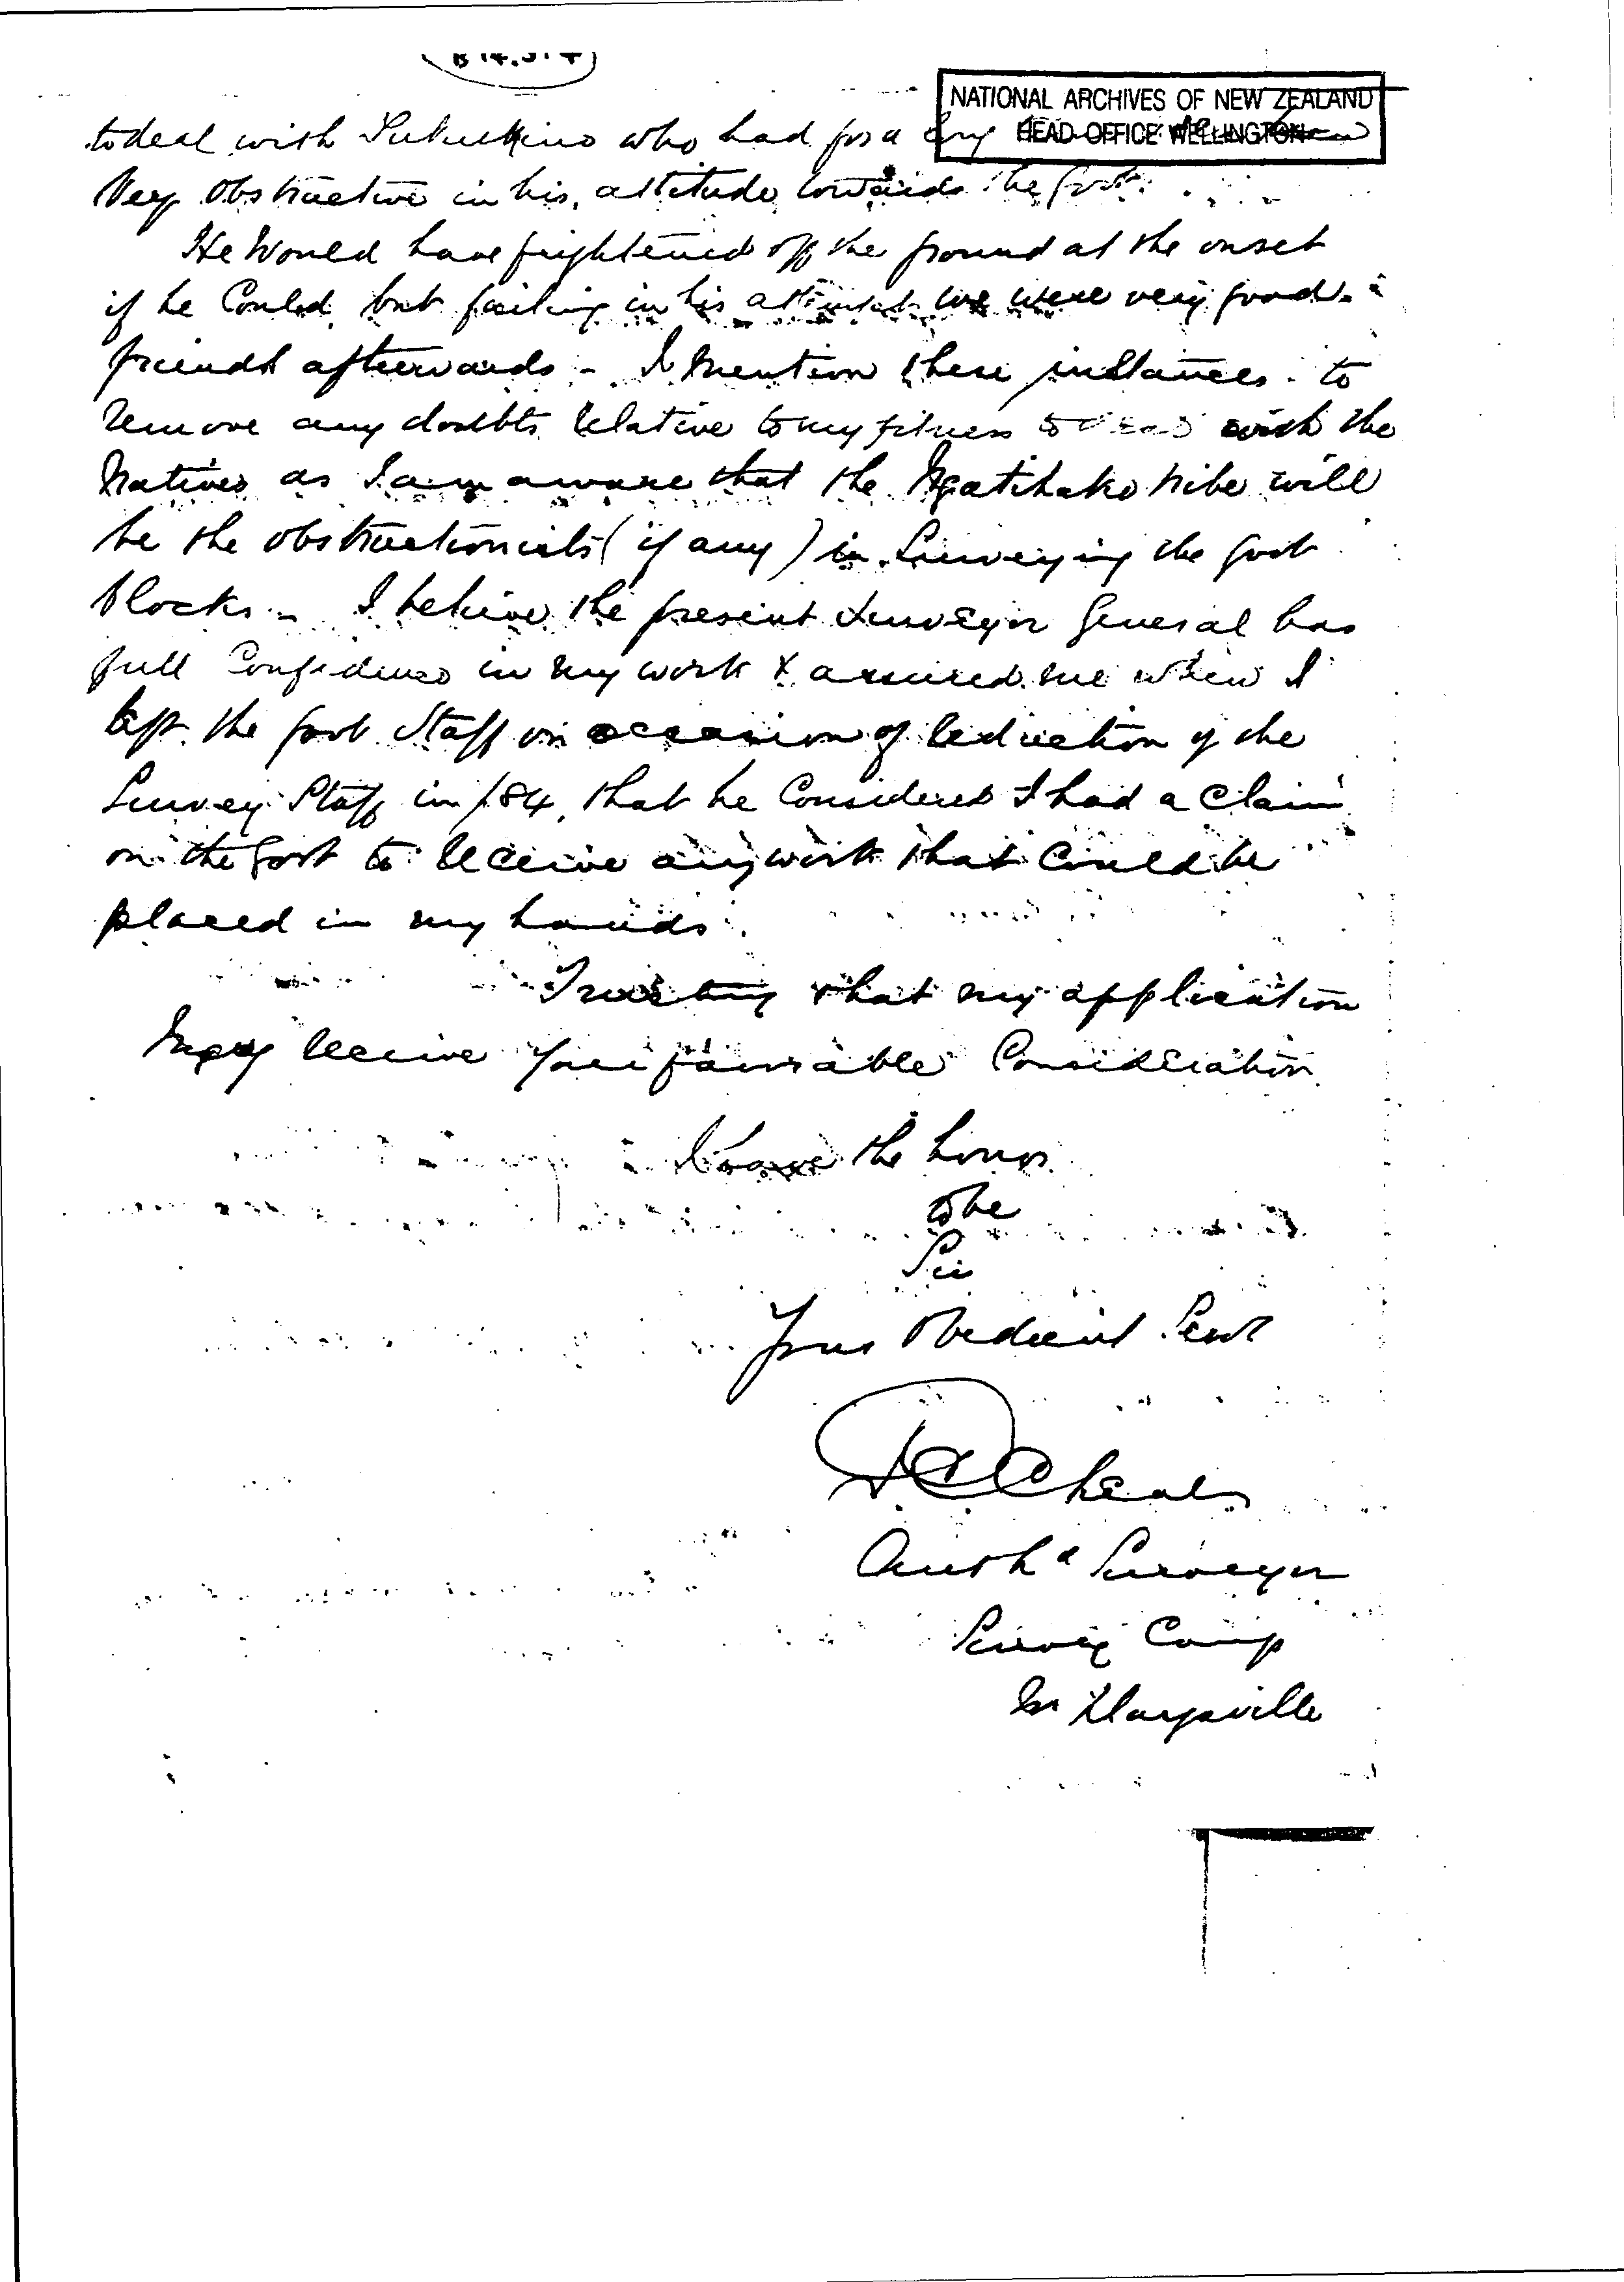 NATIONAL ARCHIVES OF NEW ZEALAND
HEAD OFFICE WELLINGTON
to deal with Tukukino who had for a long been
Very Obstructive in his attitude towards the Govt.
He Would have frightened off the ground at the onset
if he Could, but failing in his attempt we were very good
friends afterwards - I mention these instances to
remove any doubts relative to my fitness to deal with the
Natives as I am aware that the Ngatihako tribe will
be the obstructionists (if any) in Surveying the Govt
blocks - I believe the present Surveyor General has
full Confidence in my work & assured me when I
left the Govt Staff on occasion of reduction of the
Survey Staff in /84, that he Considered I had a Claim
on the Govt to receive any work that Could be
placed in my hands.
Trusting that my application
May receive your favorable Consideration
I have the honor
to be
Sir
Your Obedient Servt
Cheal
Authd Surveyor
Survey Camp
Nr Marysville